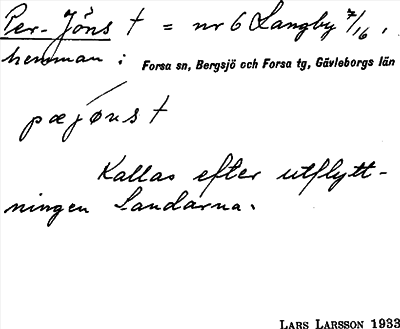 Per-Jöns † = nr 6 Långby 7/16,
hemman i Forsa sn, Bergsjö och Forsa tg, Gävleborgs län
pæjøns †
Kallas efter utflytt-
ningen Sandarna.
LARS LARSSON 1933